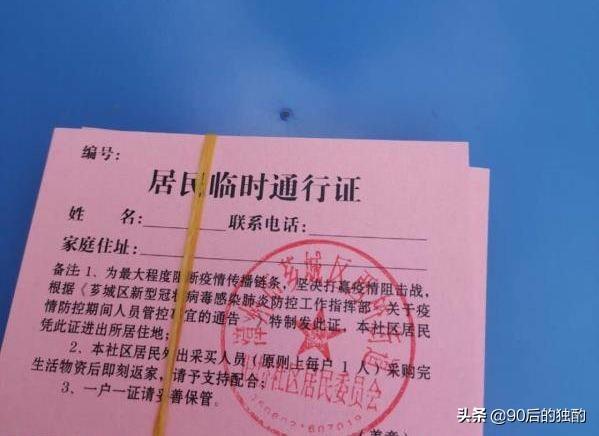 编号：
居民临时通行证
姓　名：＿＿＿＿ 联系电话：＿＿＿＿
家庭住址：＿＿＿＿
备注：1、为最大程度阻断疫情传播链条，坚决打赢疫情阻击战，
根据《芗城区新型冠状病毒感染肺炎防控工作指挥部 关于疫
情防控期间人员管控事宜的通告》，特制发此证，本社区居民
凭此证进出所居住地；
2、本社区居民外出采买人员（原则上每户1人）采购完
生活物资后即刻返家，请予支持配合；
3、一户一证请妥善保管。
芗城区
社区居民委员会
头条 @90后的独酌